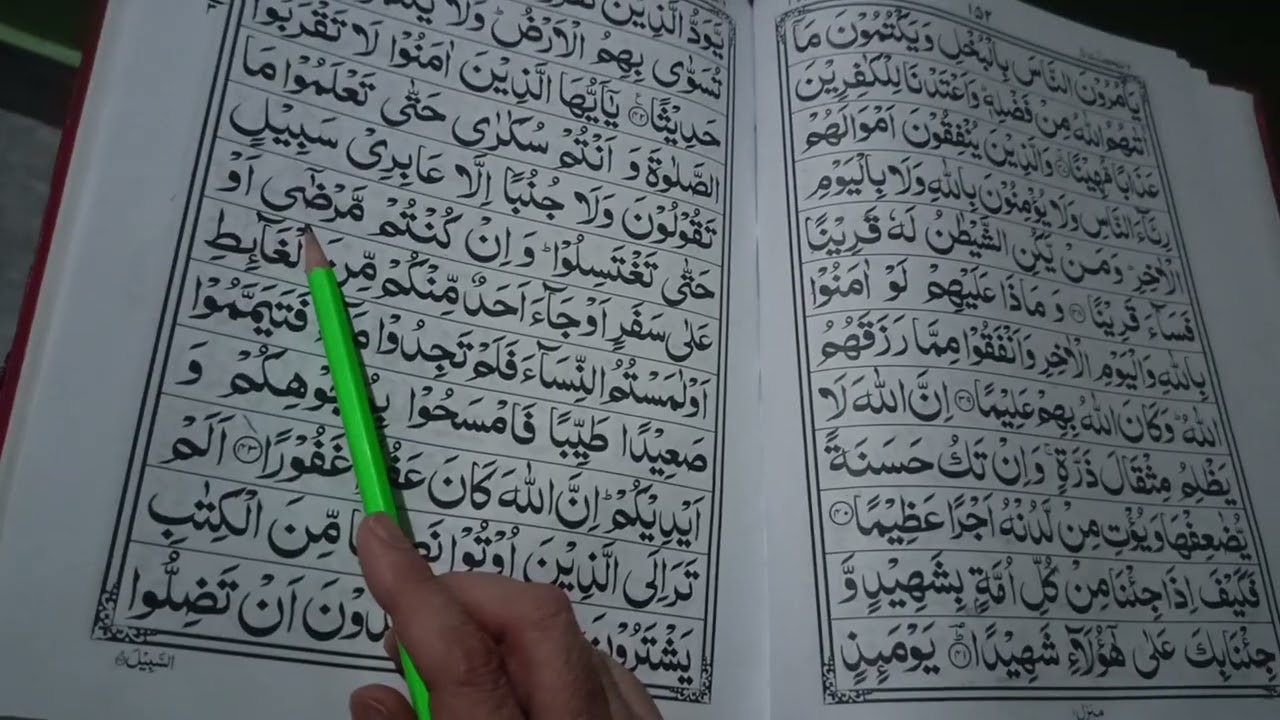 ١٥٢
يَاْمُرُوْنَ النَّاسَ بِالْبُخْلِ وَيَكْتُمُوْنَ مَاۤ
اٰتٰىهُمُ اللّٰهُ مِنْ فَضْلِهٖ ؕ وَاَعْتَدْنَا لِلْكٰفِرِيْنَ
عَذَابًا مُّهِيْنًا ۚ‏﴿۳۷﴾ وَالَّذِيْنَ يُنْفِقُوْنَ اَمْوَالَهُمْ
رِئَآءَ النَّاسِ وَلَا يُؤْمِنُوْنَ بِاللّٰهِ وَلَا بِالْيَوْمِ
الْاٰخِرِ ؕ وَمَنْ يَّكُنِ الشَّيْطٰنُ لَهٗ قَرِيْنًا
فَسَآءَ قَرِيْنًا ﴿۳۸﴾ وَ مَاذَا عَلَيْهِمْ لَوْ اٰمَنُوْا
بِاللّٰهِ وَالْيَوْمِ الْاٰخِرِ وَاَنْفَقُوْا مِمَّا رَزَقَهُمُ
اللّٰهُ ؕ وَكَانَ اللّٰهُ بِهِمْ عَلِيْمًا ﴿۳۹﴾ اِنَّ اللّٰهَ لَا
يَظْلِمُ مِثْقَالَ ذَرَّةٍ ۚ وَاِنْ تَكُ حَسَنَةً
يُّضٰعِفْهَا وَيُؤْتِ مِنْ لَّدُنْهُ اَجْرًا عَظِيْمًا ﴿۴۰﴾
فَكَيْفَ اِذَا جِئْنَا مِنْ كُلِّ اُمَّةٍۭ بِشَهِيْدٍ وَّ
جِئْنَا بِكَ عَلٰى هٰۤؤُلَآءِ شَهِيْدًا ؕ ﴿۴۱﴾ يَوْمَئِذٍ
منزل ١
يَّوَدُّ الَّذِيْنَ
تُسَوّٰى بِهِمُ الْاَرْضُ ؕ وَلَا
حَدِيْثًا ﴿۴۲﴾ يٰۤاَيُّهَا الَّذِيْنَ اٰمَنُوْا لَا تَقْرَبُوا
الصَّلٰوةَ وَ اَنْتُمْ سُكٰرٰى حَتّٰى تَعْلَمُوْا مَا
تَقُوْلُوْنَ وَلَا جُنُبًا اِلَّا عَابِرِىْ سَبِيْلٍ
حَتّٰى تَغْتَسِلُوْا ؕ وَ اِنْ كُنْتُمْ مَّرْضٰۤى اَوْ
عَلٰى سَفَرٍ اَوْ جَآءَ اَحَدٌ مِّنْكُمْ مِّنَ الْغَآئِطِ
اَوْ لٰمَسْتُمُ النِّسَآءَ فَلَمْ تَجِدُوْا فَتَيَمَّمُوْا
صَعِيْدًا طَيِّبًا فَامْسَحُوْا بِوُجُوْهِكُمْ وَ
اَيْدِيْكُمْ ؕ اِنَّ اللّٰهَ كَانَ عَفُوًّا غَفُوْرًا ﴿۴۳﴾ اَلَمْ
تَرَ اِلَى الَّذِيْنَ اُوْتُوْا مِّنَ الْكِتٰبِ
يَشْتَرُوْنَ اَنْ تَضِلُّوا
السَّبِيْلَ